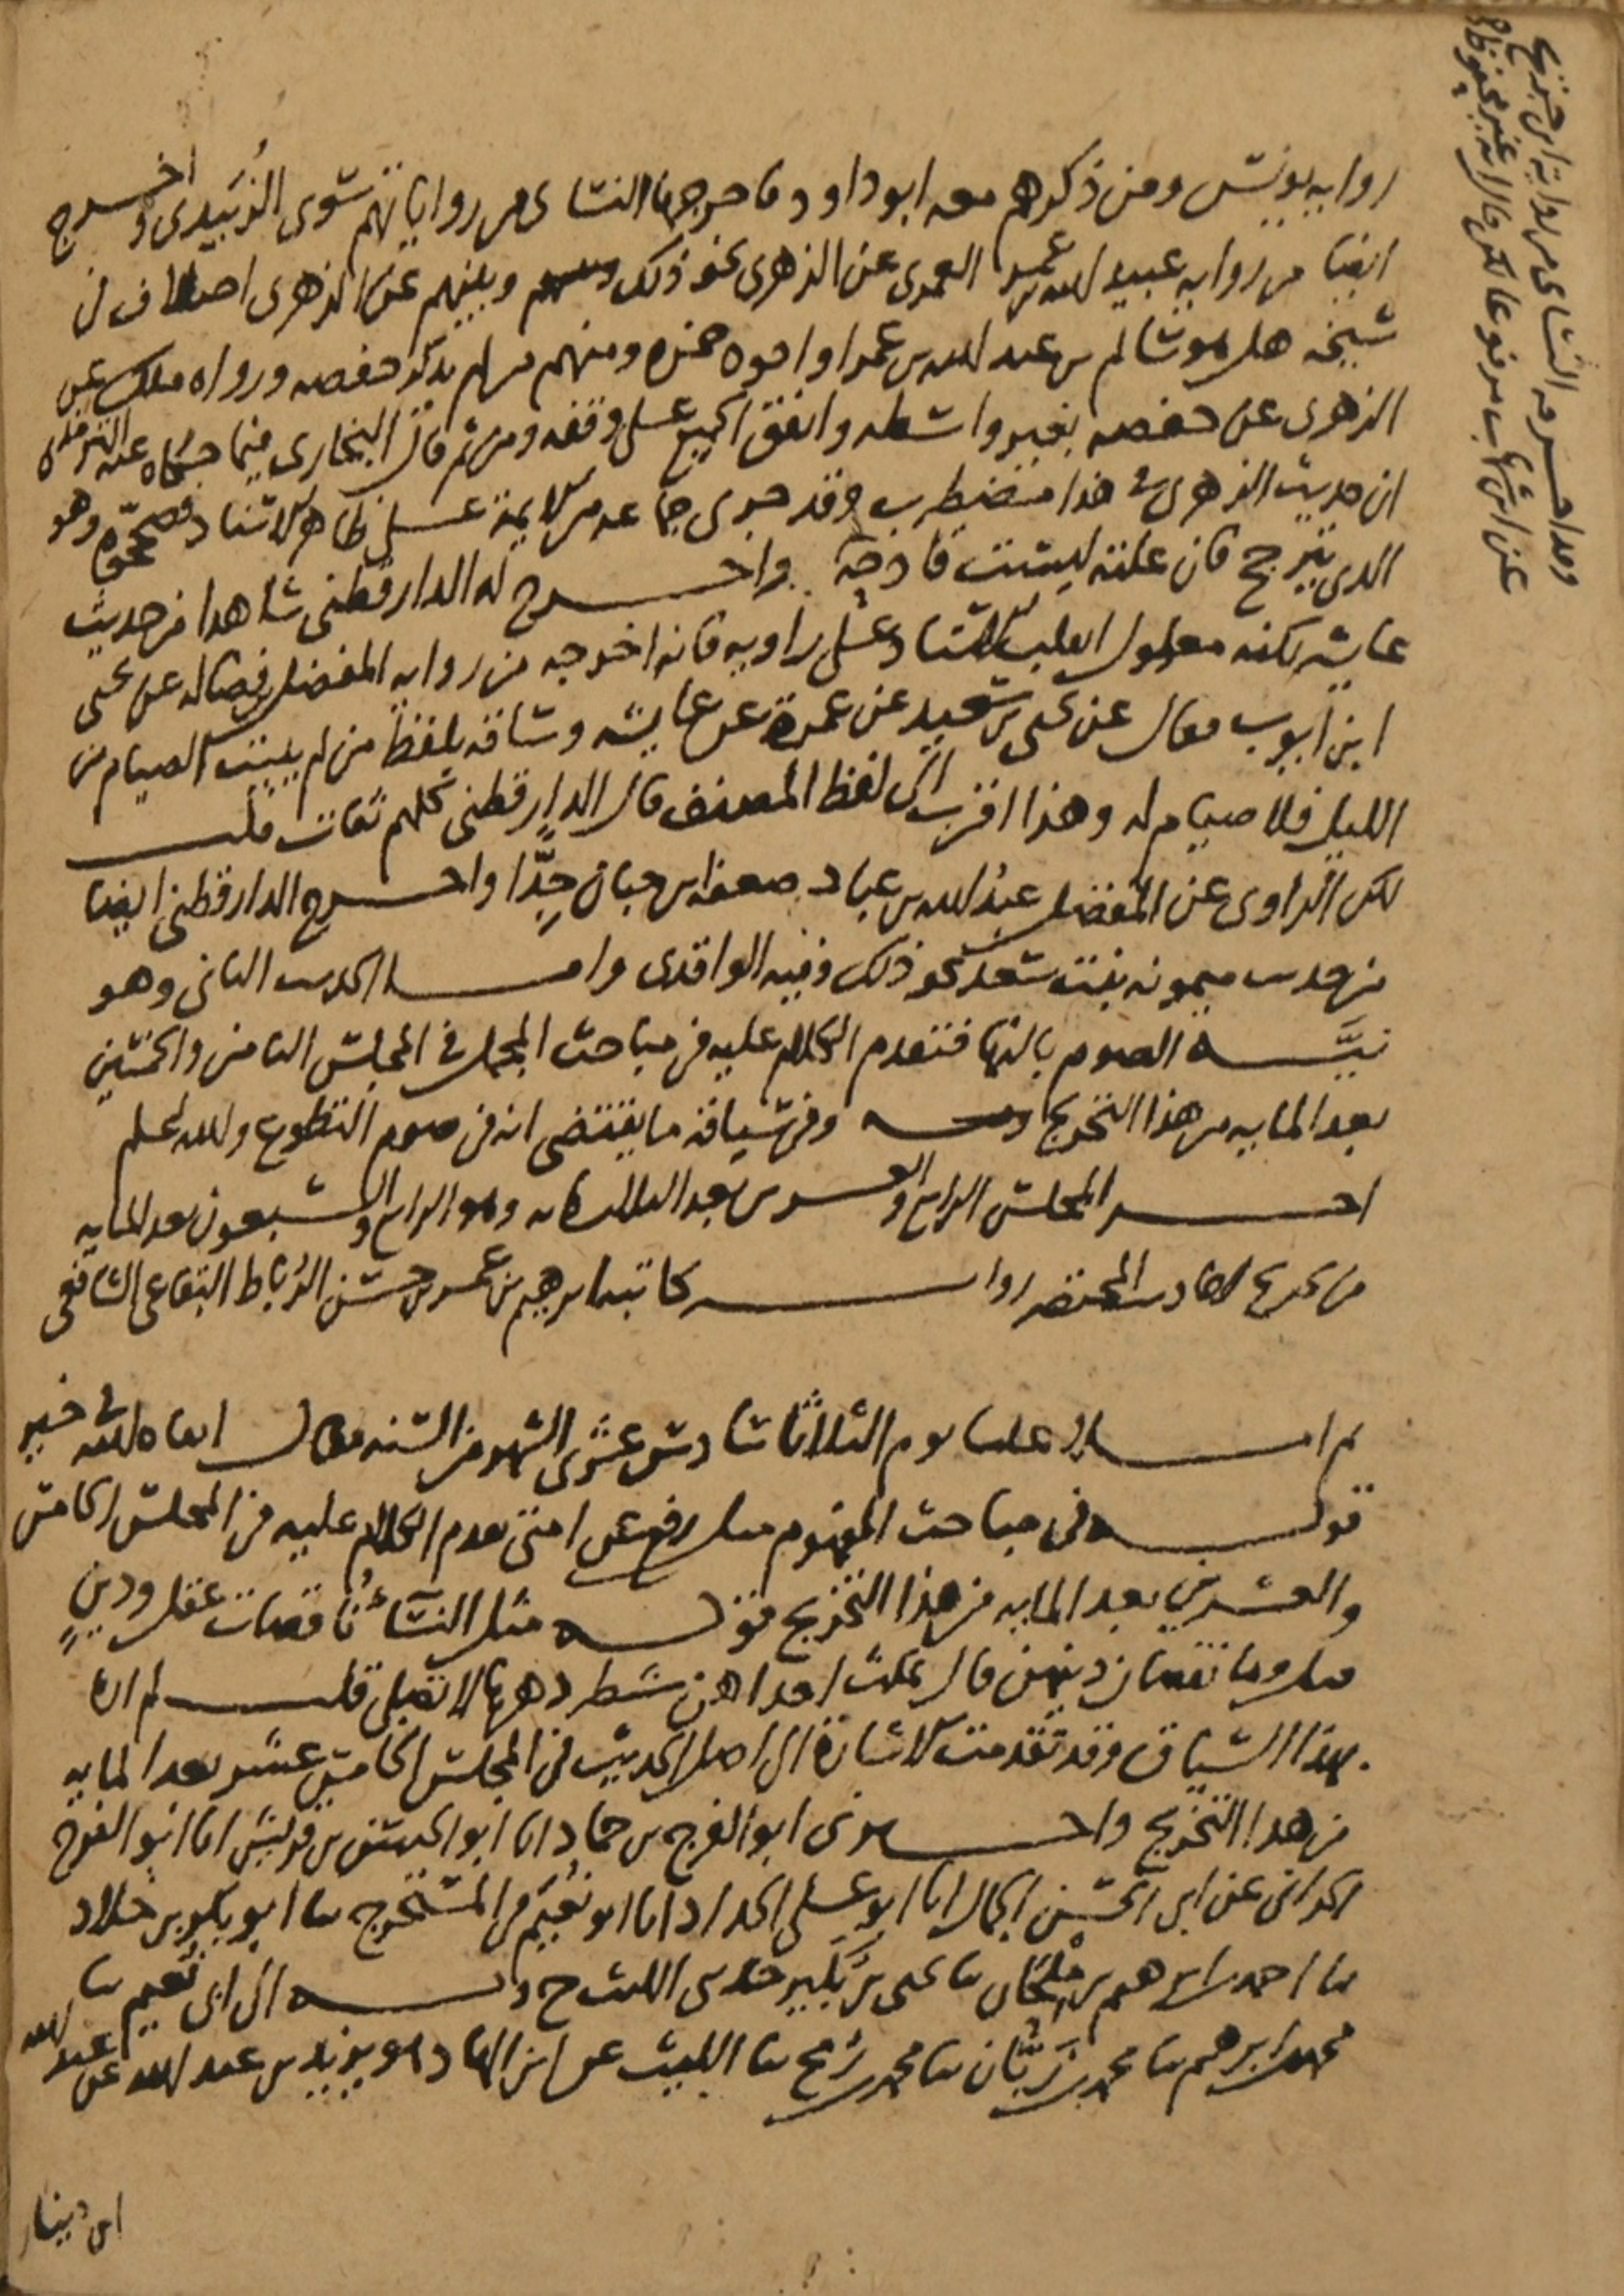 رواية يونس ومن ذكرهم معه ابو داود فاخرجها النسائى من رواياتهم سوى الزبيدى واخرج
ايضا من رواية عبيد الله بن عمر العمرى عن الزهرى نحو ذلك وبينهم عن الزهرى اختلاف فى
شيخه هل هو سالم بن عبد الله بن عمر او اخوه حمزه ومنهم من لم يذكر حفصه ورواه ملك عن
الزهرى عن حفصه بغير واسطه واتفق الجميع على وقفه ومن ثم قال البخارى فيما حكاه عنه الترمذى
ان حديث الزهرى فى هذا مضطرب وقد جرى جماعه من الايمة على ظاهر الاسناد فصححوه وهو
الذى يترجح فان علته ليست قادحة واخرج له الدارقطنى شاهدا من حديث
عايشه لكنه معلول انقلب الاسناد على راويه فانه اخرجه من رواية المفضل بن فضاله عن يحيى
ابن ايوب فقال عن يحيى بن سعيد عن عمرة عن عايشه وساقه بلفظ من لم يبيت الصيام من
الليل فلا صيام له وهذا اقرب الى لفظ المصنف قال الدارقطنى كلهم ثقات قلت
لكن الراوى عن المفضل عبد الله بن عباد ضعفه ابن حبان جدّا واخرج الدارقطنى ايضا
من حديث ميمونه بنت سعد نحو ذلك وفيه الواقدى واما الحديث الثانى وهو
نيّة الصوم بالنهار فتقدم الكلام عليه فى مباحث المجمل فى المجلس الثامن والخمسين
بعد المايه من هذا التخريج وفى سياقه ما يقتضى انه فى صوم التطوع والله اعلم
اخر المجلس الرابع والعشرين بعد الثلاثمايه وهو الرابع والسبعون بعد المايه
من تخريج احاديث المختصر رواية كاتبه ابرهيم بن عمر بن حسن الرباط البقاعى الشافعى
ثم املا علينا يوم الثلاثا سادس عشرى الشهر من السنه فقال ابقاه الله فى خير
قوله فى مباحث المفهوم مثل رفع عن امتى تقدم الكلام عليه فى المجلس الخامس
والعشرين بعد المايه من هذا التخريج قوله مثل النسآ ناقصات عقل ودين
قيل وما نقصان دينهن قال تمكث احداهن شطر دهرها لا تصلى قلت لم اره
بهذا السياق وقد تقدمت الاشارة الى اصل الحديث فى المجلس الخامس عشر بعد المايه
من هذا التخريج واخبرنى ابو الفرج بن حماد انا ابو الحسن بن قريش انا ابو الفرج
الحرانى عن ابى الحسن الجمال انا ابو على الحداد انا ابو نعيم فى المستخرج ثنا ابو بكر بن خلاد
ثنا احمد بن ابرهيم بن ملحان ثنا يحيى بن بكير حدثنى الليث ح وبه الى ابى نعيم ثنا
محمد بن ابرهيم ثنا محمد بن زبّان ثنا محمد بن رمح ثنا الليث عن ابن الهاد هو يزيد بن عبد الله عن عبد الله
ابن دينار
وقد اخرجه النسائى من رواية ابن جريج
عن ابن شهاب مرفوعا لكن قال انه غير محفوظ